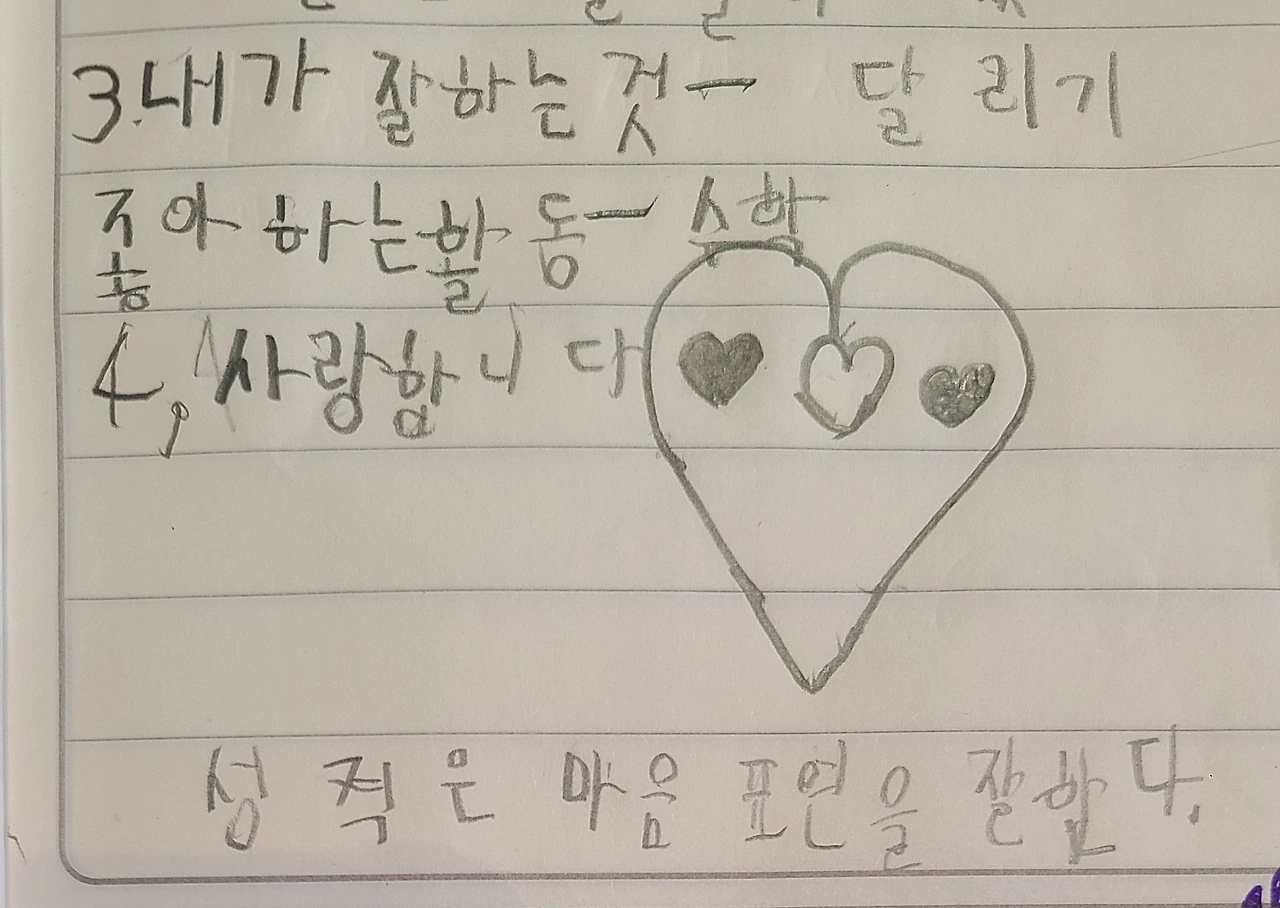 3.내가 잘하는 것- 달리기
좋아하는활동- 수학
4, 사랑합니다
성적은 마음 표연을 잘한다.